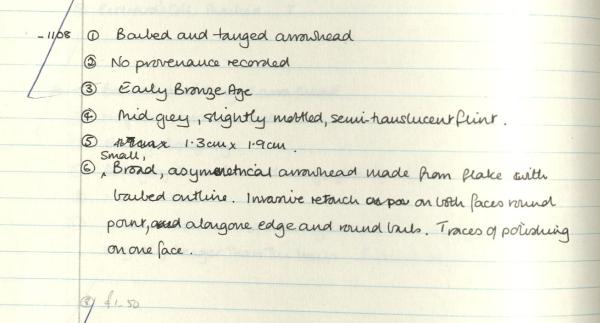 -1108 ① Barbed and tanged arrowhead
② No provenance recorded
③ Early Bronze Age
④ Mid grey, slightly mottled, semi-translucent flint.
⑤ 1.3cm x 1.9cm.
Small,
⑥ Broad, asymmetrical arrowhead made from flake with
barbed outline. Invasive retouch on both faces round
point, along one edge and round barb. Traces of polishing
on one face.
⑧ £1.50